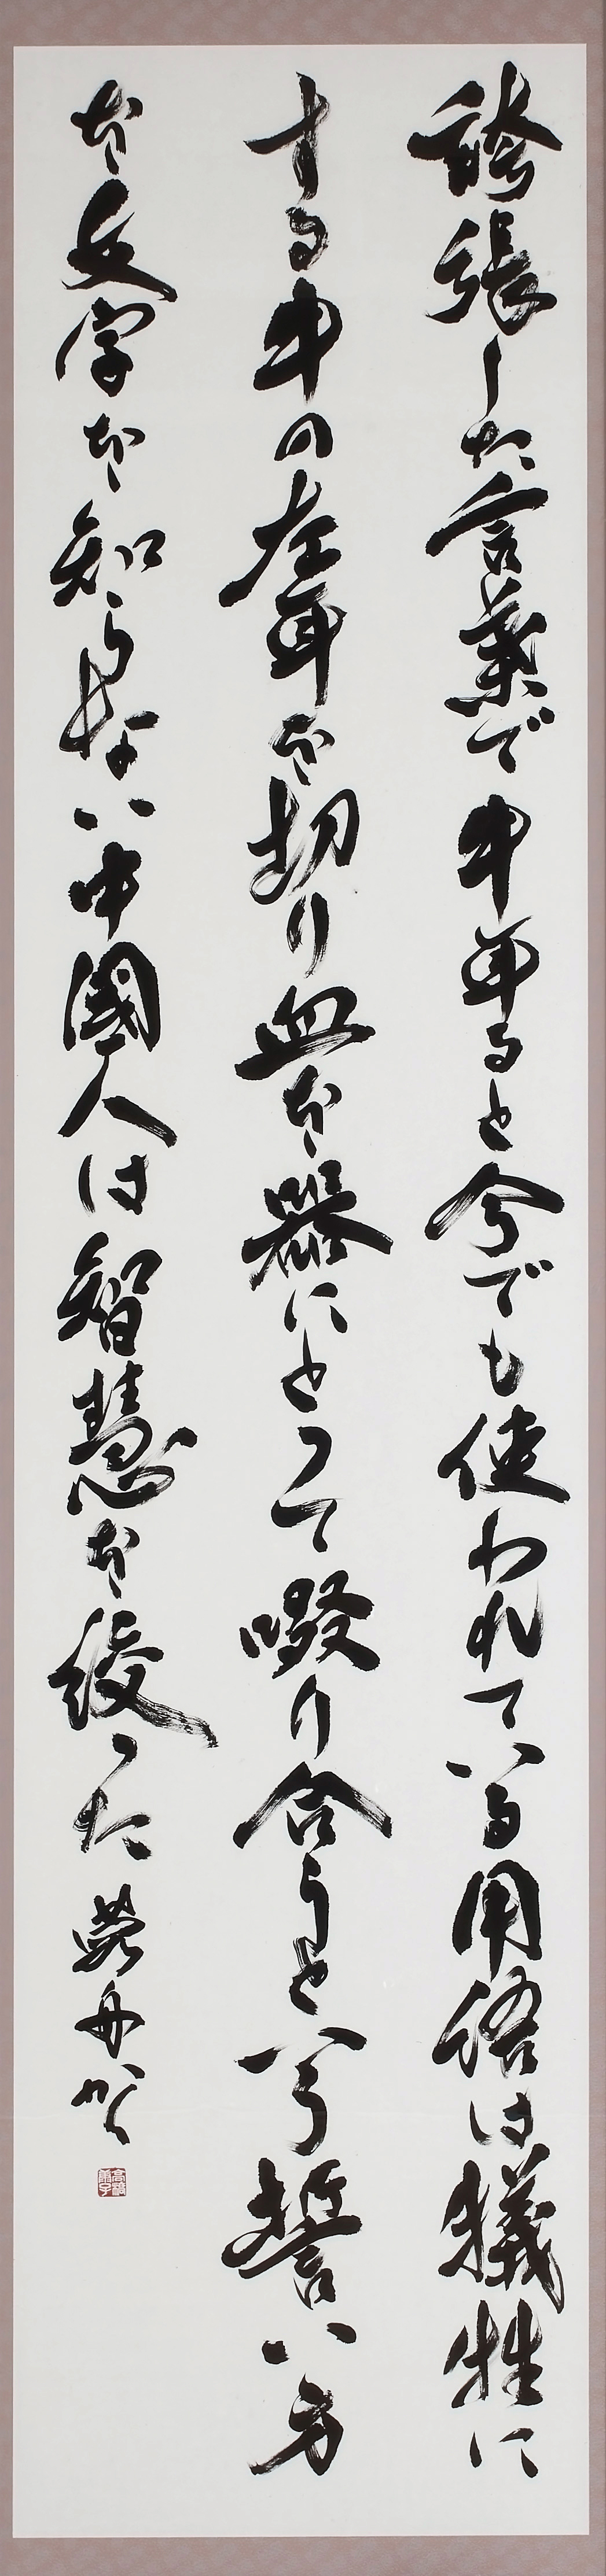 誇張した言葉で牛耳ると今でも使われている用語は犠牲に
する牛の左耳を切り血を器にとって啜り合うと いう誓い方
を文字を知らない中國人は智慧を絞った